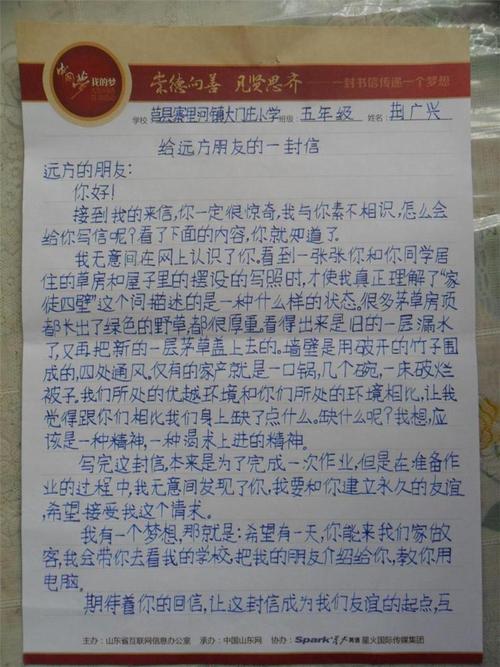 中国梦 我的梦
崇德向善 见贤思齐 一封书信传递一个梦想
学校 莒县寨里河镇大门庄小学 班级 五年级 姓名: 荆广兴
给远方朋友的一封信
远方的朋友:
你好!
接到我的来信,你一定很惊奇,我与你素不相识,怎么会
给你写信呢?看了下面的内容,你就知道了。
我无意间在网上认识了你。看到一张张你和你同学居
住的草房和屋子里的摆设的写照时,才使我真正理解了“家
徒四壁”这个词描述的是一种什么样的状态。很多茅草房顶
都长出了绿色的野草,都很厚重。看得出来是旧的一层漏水
了,又再把新的一层茅草盖上去的。墙壁是用破开的竹子围
成的,四处通风。仅有的家产就是一口锅,几个碗,一床破烂
被子。我们所处的优越环境和你们所处的环境相比,让我
觉得跟你们相比我们身上缺了点什么。缺什么呢?我想,应
该是一种精神,一种渴求上进的精神。
写完这封信,本来是为了完成一次作业,但是在准备作
业的过程中,我无意间发现了你,我要和你建立永久的友谊
,希望接受我这个请求。
我有一个梦想,那就是:希望有一天,你能来我们家做
客,我会带你去看我的学校,把我的朋友介绍给你,教你用
电脑。
期待着你的回信,让这封信成为我们友谊的起点,互
主办:山东省互联网信息办公室 承办:中国山东网 协办:Spark星火英语 星火国际传媒集团